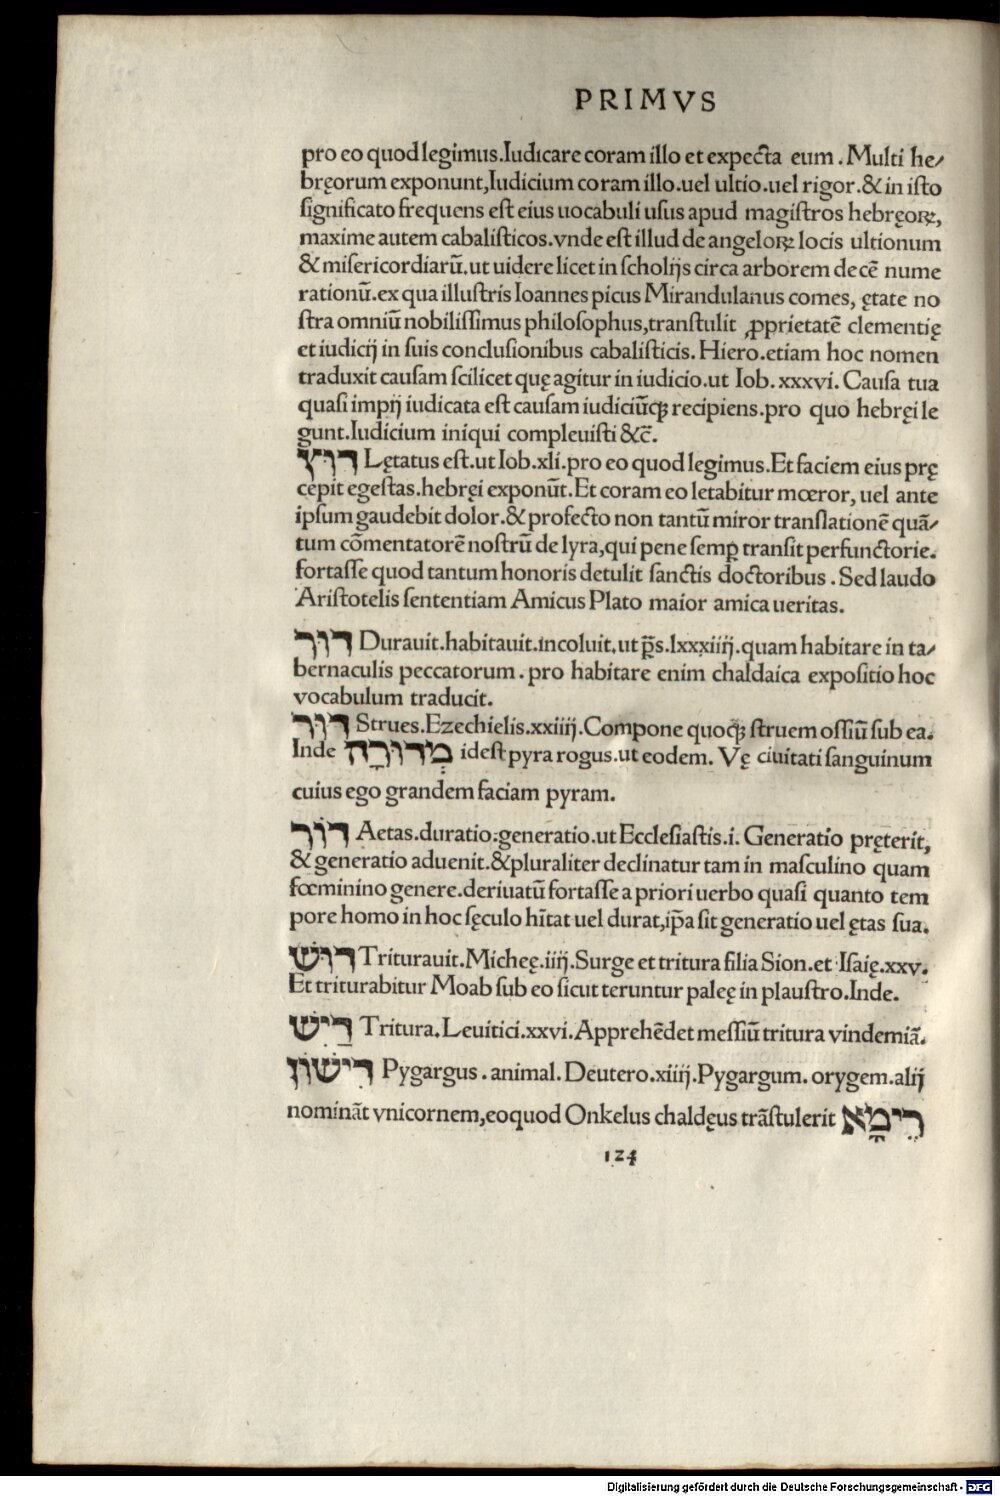 PRIMVS
pro eo quod legimus.Iudicare coram illo et expecta eum . Multi he/
bręorum exponunt,Iudicium coram illo.uel ultio.uel rigor.& in isto
significato frequens est eius uocabuli usus apud magistros hebręoꝝ,
maxime autem cabalisticos.vnde est illud de angeloꝝ locis ultionum
& misericordiarū.ut uidere licet in scholijs circa arborem decē nume
rationū.ex qua illustris Ioannes picus Mirandulanus comes, ętate no
stra omniū nobilissimus philosophus,transtulit ꝓprietatē clementię
et iudicij in suis conclusionibus cabalisticis. Hiero.etiam hoc nomen
traduxit causam scilicet quę agitur in iudicio.ut Iob. xxxvi. Causa tua
quasi impij iudicata est causam iudiciūqꝫ recipiens.pro quo hebręi le
gunt.Iudicium iniqui compleuisti &c̄.
דוּץ Lętatus est.ut Iob.xli.pro eo quod legimus.Et faciem eius prę
cepit egestas.hebręi exponūt.Et coram eo letabitur mœror, uel ante
ipsum gaudebit dolor.& profecto non tantū miror translationē quā/
tum cōmentatorē nostrū de lyra,qui pene semꝑ transit perfunctorie.
fortasse quod tantum honoris detulit sanctis doctoribus . Sed laudo
Aristotelis sententiam Amicus Plato maior amica ueritas.
דוּר Durauit.habitauit.incoluit.ut p̄s.lxxxiiij.quam habitare in ta/
bernaculis peccatorum . pro habitare enim chaldaica expositio hoc
vocabulum traducit.
דוּר Strues.Ezechielis.xxiiij.Compone quoqꝫ struem ossiū sub ea.
Inde מְדוּרָה idest pyra rogus.ut eodem. Vę ciuitati sanguinum
cuius ego grandem faciam pyram.
דוֹר Aetas.duratio:generatio.ut Ecclesiastis.i. Generatio pręterit,
& generatio aduenit.&pluraliter declinatur tam in masculino quam
fœminino genere.deriuatū fortasse a priori uerbo quasi quanto tem
pore homo in hoc sęculo hītat uel durat,ip̄a sit generatio uel ętas sua.
דוּשׁ Triturauit.Micheę.iiij.Surge et tritura filia Sion.et Isaię.xxv.
Et triturabitur Moab sub eo sicut teruntur paleę in plaustro.Inde.
דַּיִשׁ Tritura.Leuitici.xxvi.Apprehēdet messiū tritura vindemiā.
דִּישׁוֹן Pygargus . animal. Deutero.xiiij.Pygargum. orygem.alij
nomināt vnicornem,eoquod Onkelus chaldęus trāstulerit רֵימָא
124
Digitalisierung gefördert durch die Deutsche Forschungsgemeinschaft - DFG